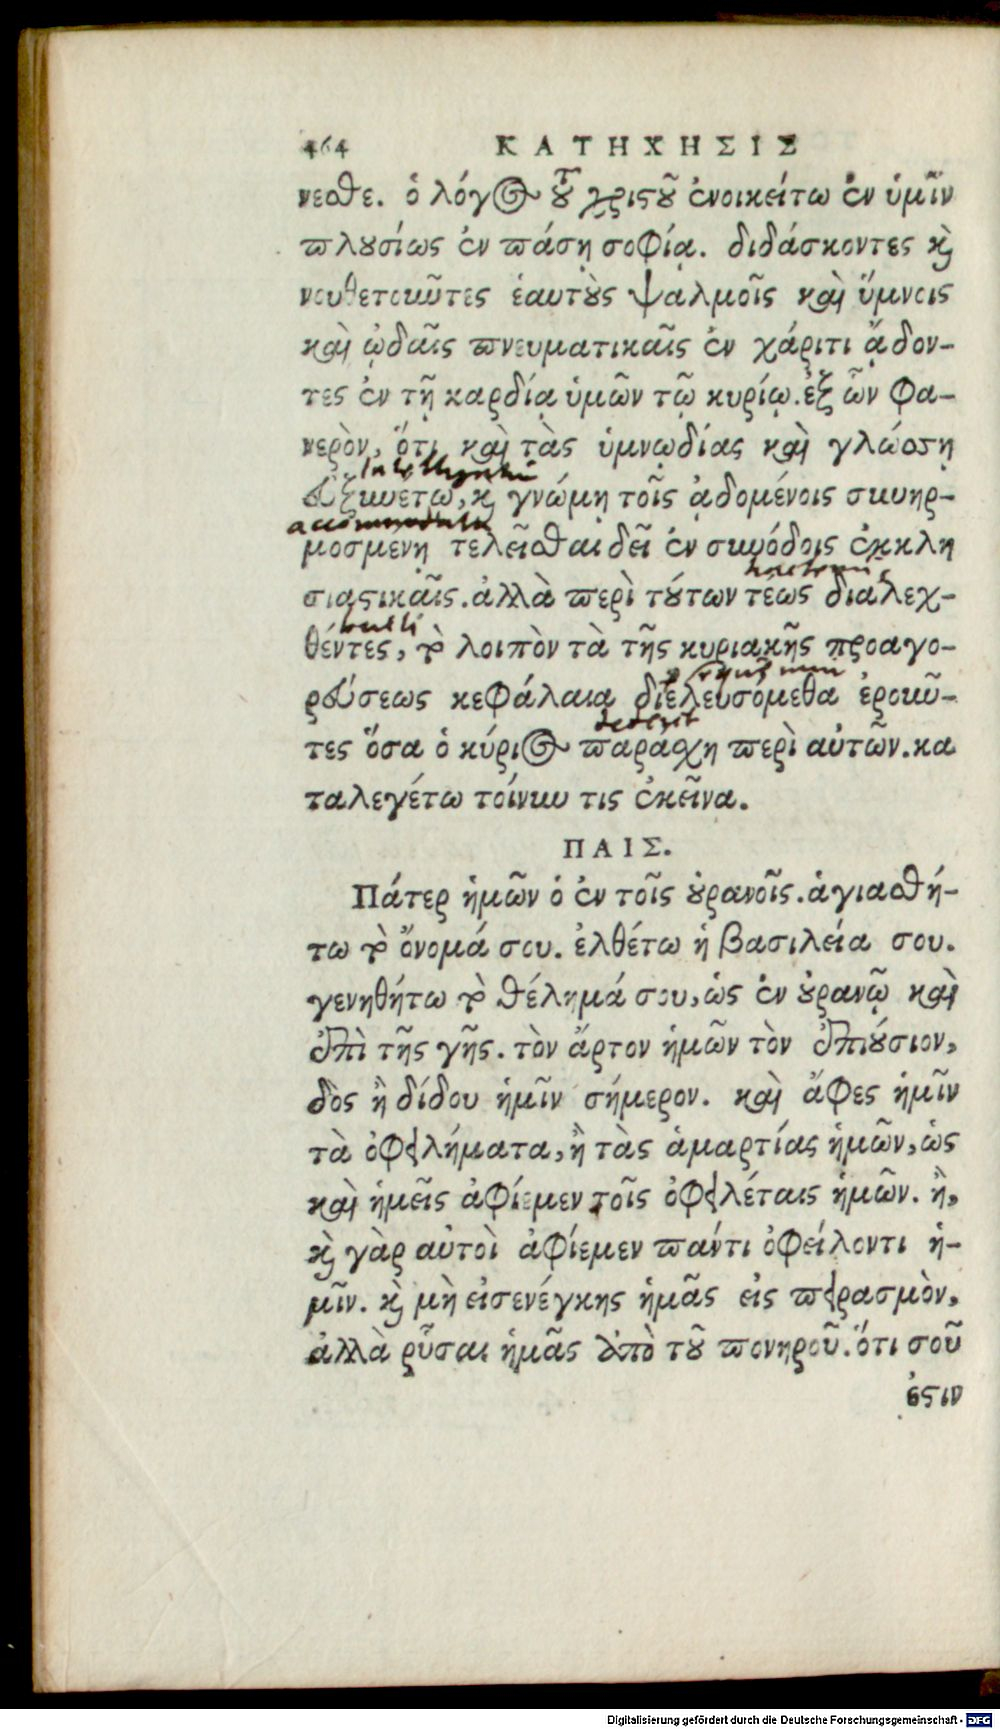 464 ΚΑΤΗΧΗΣΙΣ
νεσθε. ὁ λόγος τοῦ χριστοῦ ἐνοικείτω ἐν ὑμῖν
πλουσίως ἐν πάσῃ σοφίᾳ. διδάσκοντες καὶ
νουθετοιῦτες ἑαυτοὺς ψαλμοῖς καὶ ὕμνοις
καὶ ᾠδαῖς πνευματικαῖς ἐν χάριτι ᾄδον-
τες ἐν τῇ καρδίᾳ ὑμῶν τῷ κυρίῳ. ἐξ ὧν φα-
νερὸν, ὅτι καὶ τὰς ὑμνῳδίας καὶ γλώσσῃ
εὐξυνέτῳ, καὶ γνώμῃ τοῖς ᾀδομένοις συνηρ-
accommodata
μοσμενῃ τελεῖσθαι δεῖ ἐν συνόδοις ἐκκλη
σιαστικαῖς. ἀλλὰ περὶ τούτων τέως διαλεχ-
θέντες, τὸ λοιπὸν τὰ τῆς κυριακῆς προαγο-
ρεύσεως κεφάλαια διελευσόμεθα ἐροιῦ-
τες ὅσα ὁ κύριος παράσχῃ περὶ αὐτῶν. κα
ταλεγέτω τοίνυν τις ἐκεῖνα.
ΠΑΙΣ.
Πάτερ ἡμῶν ὁ ἐν τοῖς οὐρανοῖς. ἁγιασθή-
τω τὸ ὄνομά σου. ἐλθέτω ἡ βασιλεία σου.
γενηθήτω τὸ θέλημά σου, ὡς ἐν οὐρανῷ καὶ
ἐπὶ τῆς γῆς. τὸν ἄρτον ἡμῶν τὸν ἐπιούσιον,
δὸς ἢ δίδου ἡμῖν σήμερον. καὶ ἄφες ἡμῖν
τὰ ὀφειλήματα, ἢ τὰς ἁμαρτίας ἡμῶν, ὡς
καὶ ἡμεῖς ἀφίεμεν τοῖς ὀφειλέταις ἡμῶν. ἢ,
καὶ γὰρ αὐτοὶ ἀφίεμεν παντὶ ὀφείλοντι ἡ-
μῖν. καὶ μὴ εἰσενέγκης ἡμᾶς εἰς πειρασμὸν,
ἀλλὰ ῥῦσαι ἡμᾶς ἀπὸ τοῦ πονηροῦ. ὅτι σοῦ
ἐστιν
Digitalisierung gefördert durch die Deutsche Forschungsgemeinschaft - DFG